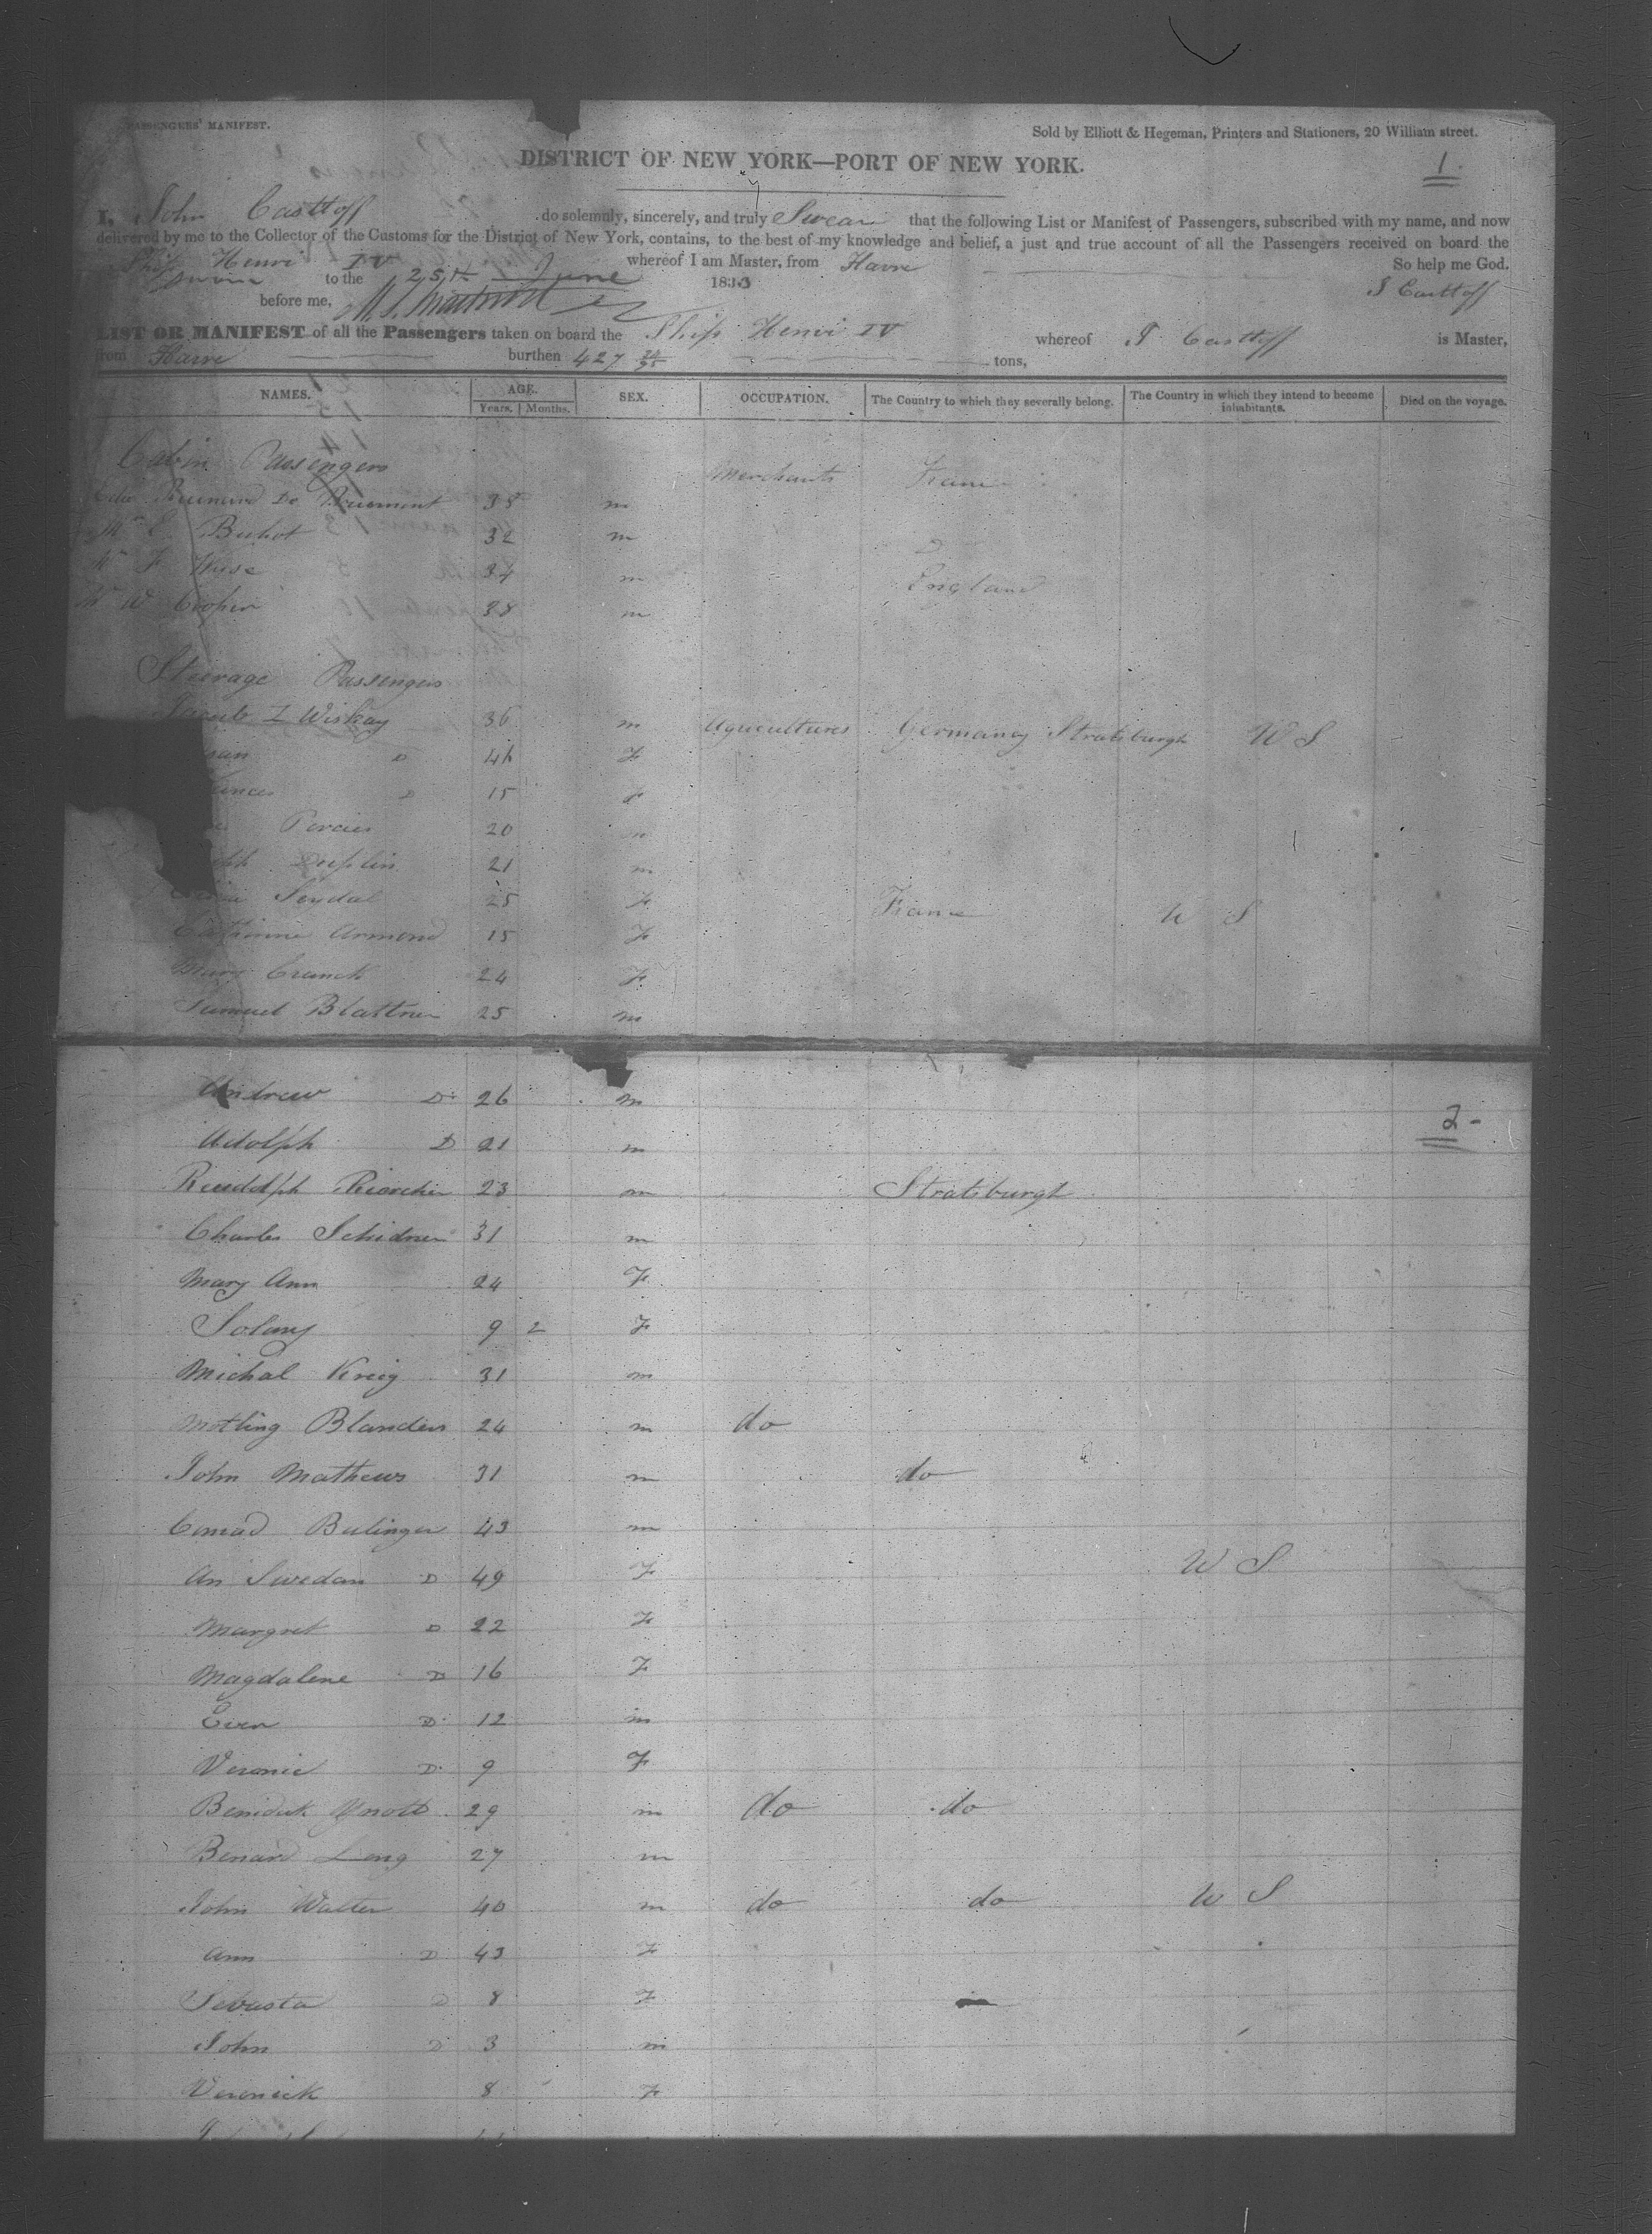 PASSENGERS' MANIFEST.
Sold by Elliott & Hegeman, Printers and Stationers, 20 William street.
DISTRICT OF NEW YORK—PORT OF NEW YORK.
1.
I, John Casttoff do solemnly, sincerely, and truly Swear that the following List or Manifest of Passengers, subscribed with my name, and now
delivered by me to the Collector of the Customs for the District of New York, contains, to the best of my knowledge and belief, a just and true account of all the Passengers received on board the
Ship Henri IV whereof I am Master, from Havre So help me God.
Sworn to the 25th June 1833 J Casttoff
before me,
LIST OR MANIFEST of all the Passengers taken on board the Ship Henri IV whereof J Casttoff is Master,
from Havre burthen 427 24/95 tons,
NAMES. AGE. Years. Months. SEX. OCCUPATION. The Country to which they severally belong. The Country in which they intend to become inhabitants. Died on the voyage.
Cabin Passengers Merchants France
De 38 m
Buhot 32 m D
34 m England
W Cooper 38 m
Steerage Passengers
Jacob I Wiskay 36 m Agricultures Germany Stratsburgh U S
D 46 F
D 15
20 m
21 m
Seydal 25 F France U S
Catherine Armond 15 F
Mary Cranck 24 F
Samuel Blattner 25 m
Andrew D 26 m
2-
Adolph D 21 m
Ruddolph 23 m Stratsburgh
Charles Schidner 31 m
Mary Ann 24 F
Solany 9 2 F
Michal Kreig 31 m
Motling Blanders 24 m do
John Mathews 31 m do
Conrad Bulinger 43 m
An Swedan D 49 F U S
Margret D 22 F
Magdalene D 16 F
Even D 12 m
Veronic D 9 F
29 m do do
Benard Leng 27 m
John Walter 40 m do do U S
Ann D 43 F
Sevasta D 8 F
John D 3 m
Veronick 8 F